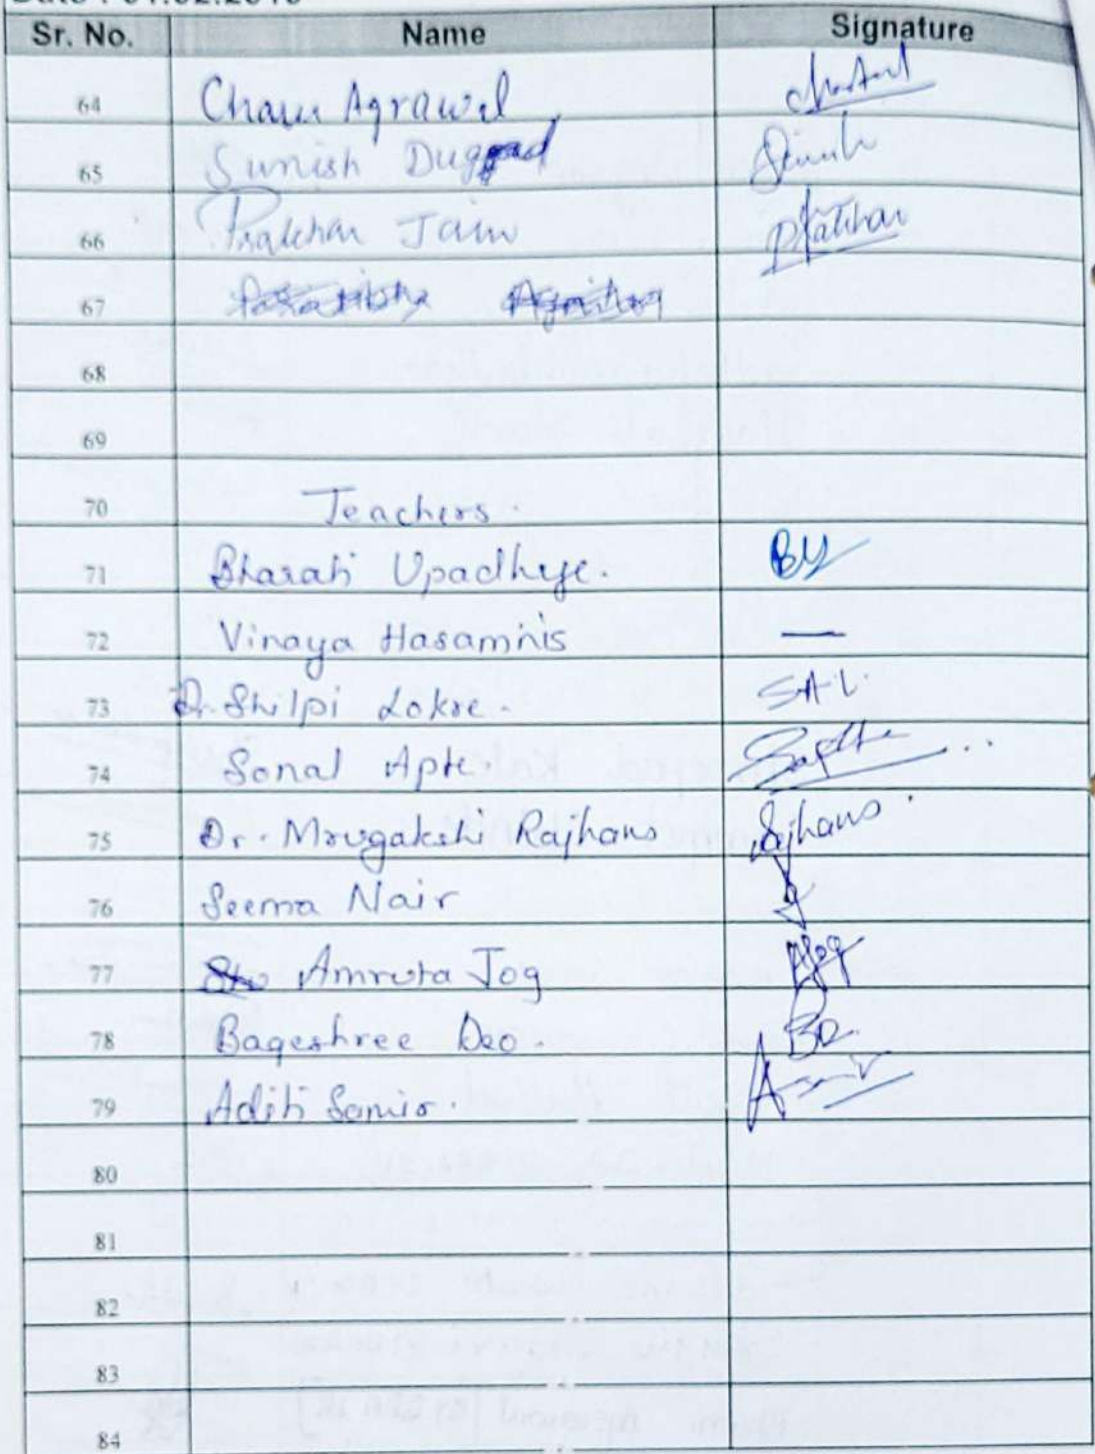 Sr. No. Name Signature
64 Charu Agrawal
65 Sunish Duggad
66 Prakhar Jain Prakhar
67
68
69
70 Teachers.
71 Bharati Upadhye. BU
72 Vinaya Hasamnis —
73 Dr. Shilpi Lokre. S.A.L.
74 Sonal Apte.
75 Dr. Mrugakshi Rajhans Rajhans
76 Seema Nair
77 Amruta Jog AJog
78 Bageshree Deo. BD
79 Aditi Samir.
80
81
82
83
84